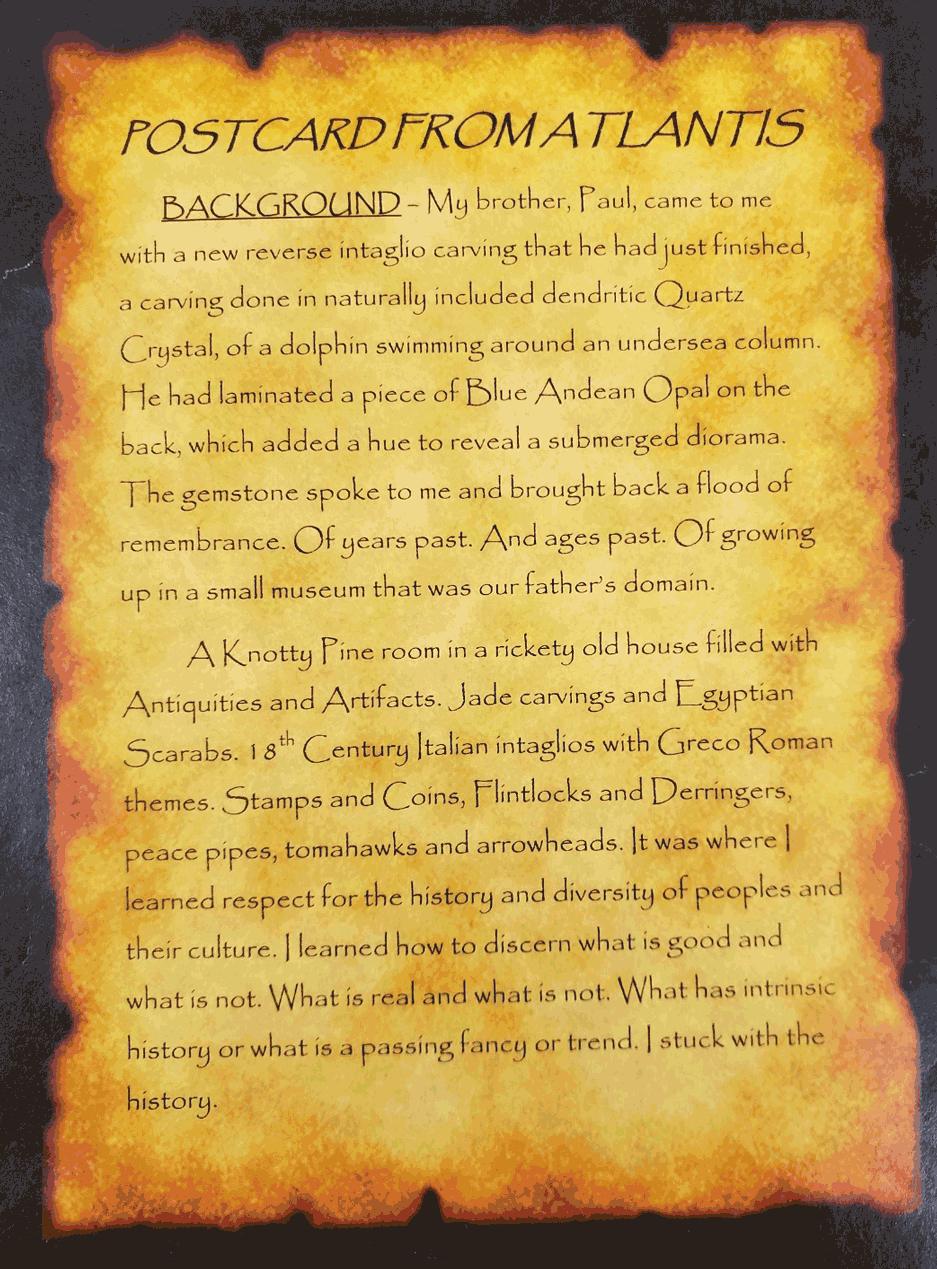 POSTCARD FROM ATLANTIS
BACKGROUND – My brother, Paul, came to me
with a new reverse intaglio carving that he had just finished,
a carving done in naturally included dendritic Quartz
Crystal, of a dolphin swimming around an undersea column.
He had laminated a piece of Blue Andean Opal on the
back, which added a hue to reveal a submerged diorama.
The gemstone spoke to me and brought back a flood of
remembrance. Of years past. And ages past. Of growing
up in a small museum that was our father's domain.
A Knotty Pine room in a rickety old house filled with
Antiquities and Artifacts. Jade carvings and Egyptian
Scarabs. 18th Century Italian intaglios with Greco Roman
themes. Stamps and Coins, Flintlocks and Derringers,
peace pipes, tomahawks and arrowheads. It was where I
learned respect for the history and diversity of peoples and
their culture. I learned how to discern what is good and
what is not. What is real and what is not. What has intrinsic
history or what is a passing fancy or trend. I stuck with the
history.